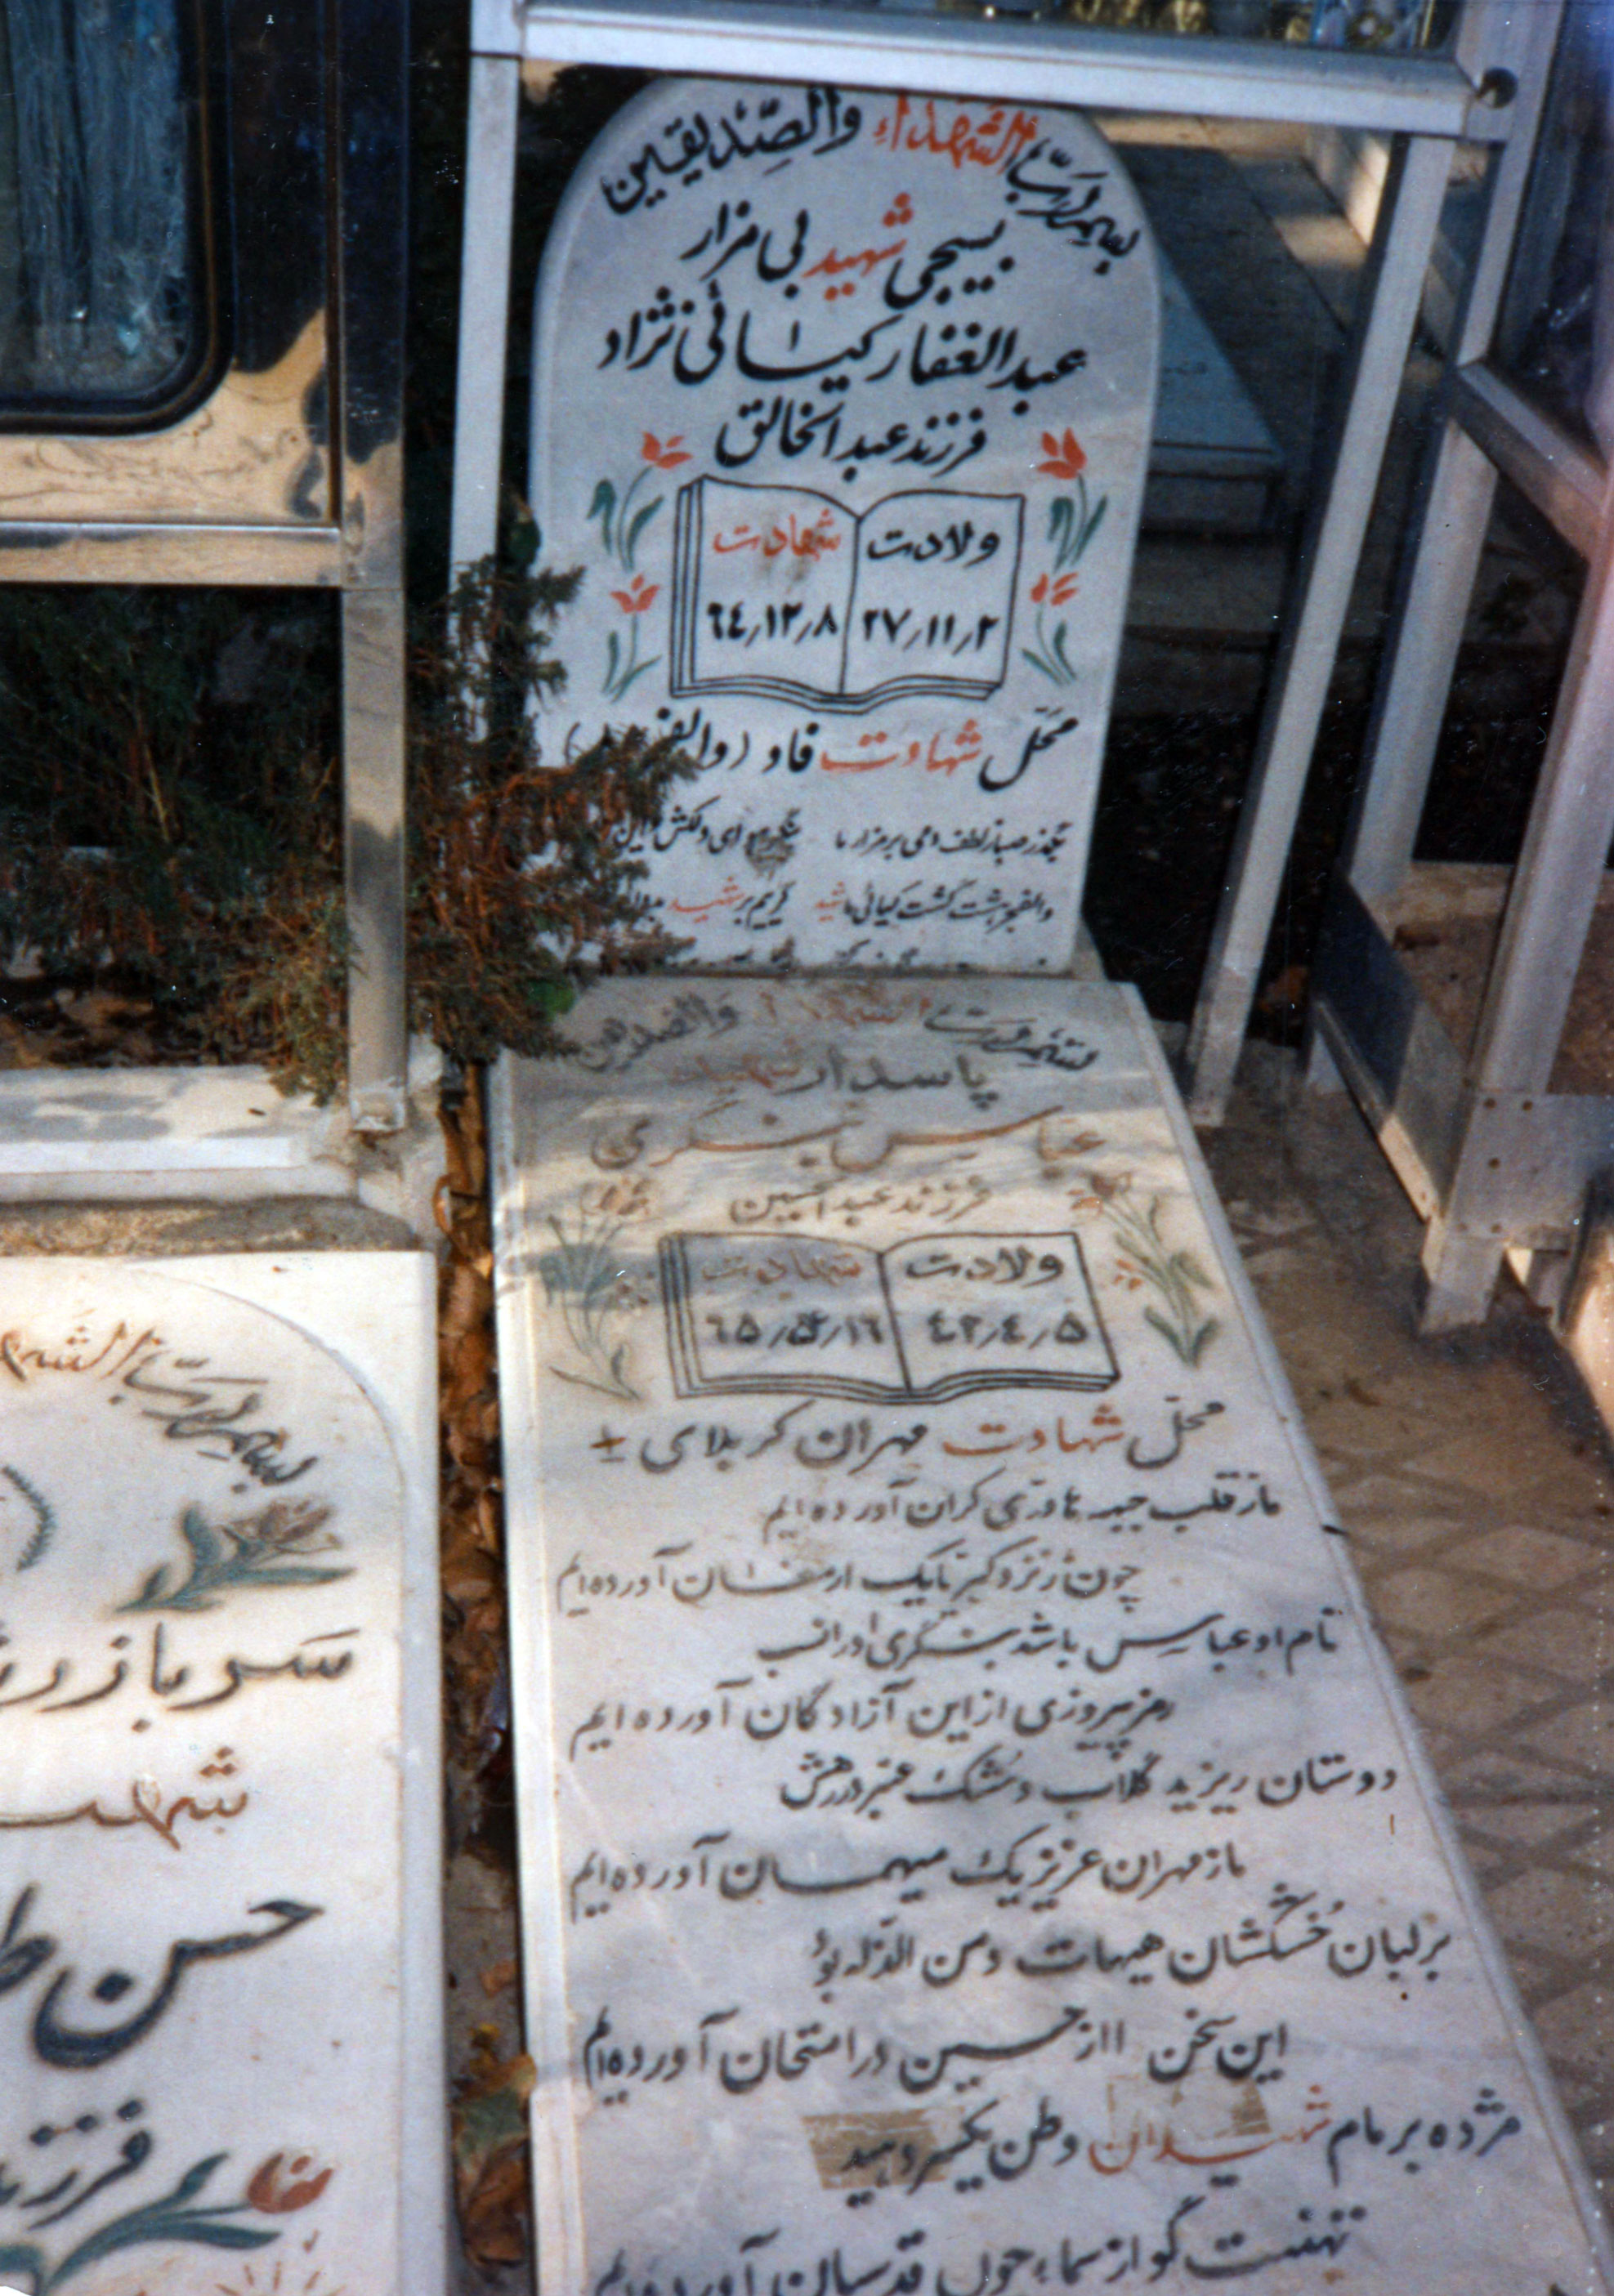 بسم رب الشهداء والصدیقین
بسیجی شهید بی مزار
عبدالغفار کیائی نژاد
فرزند عبدالخالق
ولادت شهادت
۲۷/۱۱/۲ ٦٤/۱۲/۸
محل شهادت فاو (والفجر
بگذر صبا ز لطف دمی بر مزار ما
والفجر هشت گشت کیائی ما شهید
بسم رب الشهداء والصدیقین
پاسدار شهید
عباس بشکری
فرزند عبدالحسین
ولادت شهادت
٤۲/٤/۵ ٦۵/۱٦
محل شهادت مهران کربلای ۱
ما ز قلب جبهه ها دری گران آورده ایم
چون ز نزد کبریا یک ارمغان آورده ایم
نام او عباس باشد بشکری او را نسب
رمز پیروزی از این آزادگان آورده ایم
دوستان ریزید گلاب و مشک عنبر در رهش
ما ز مهران عزیز یک میهمان آورده ایم
بر لبان خشکشان هیهات و من الذله بود
این سخن را از حسین در امتحان آورده ایم
مژده بر مام شهیدان وطن یکسر دهید
تهنیت گو از سما، چون قدسیان آورده ایم
بسم رب الشه
سرباز
شهی
حسن
فرزند